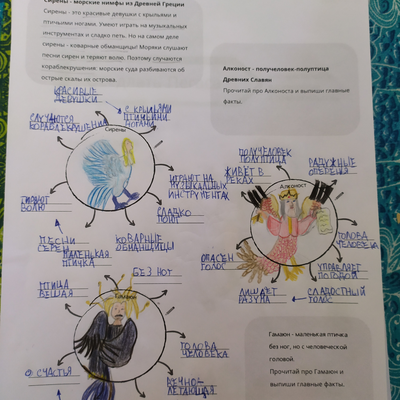 Сирены - морские нимфы из Древней Греции
Сирены - это красивые девушки с крыльями и
птичьими ногами. Умеют играть на музыкальных
инструментах и сладко петь. Но на самом деле
сирены - коварные обманщицы! Моряки слушают
песни сирен и теряют волю. Поэтому случаются
кораблекрушения: морские суда разбиваются об
острые скалы их острова.
Алконост - получеловек-полуптица
Древних Славян
Прочитай про Алконоста и выпиши главные
факты.
КРАСИВЫЕ
ДЕВУШКИ
С КРЫЛЬЯМИ
ПТИЧЬИМИ
НОГАМИ
СЛУЧАЮТСЯ
КОРАБЛЕКРУШЕНИЯ
Сирены
ИГРАЮТ НА
МУЗЫКАЛЬНЫХ
ИНСТРУМЕНТАХ
СЛАДКО
ПОЮТ
ТЕРЯЮТ
ВОЛЮ
ПЕСНИ
СИРЕН
КОВАРНЫЕ
ОБМАНЩИЦЫ
ПОЛУЧЕЛОВЕК
ПОЛУПТИЦА
ЖИВЁТ В
РЕКАХ
РАДУЖНЫЕ
ОПЕРЕНИЯ
Алконост
ГОЛОВА
ЧЕЛОВЕКА
ОПАСЕН
ГОЛОС
УПРАВЛЯЕТ
ПОГОДОЙ
ЛИШАЕТ
РАЗУМА
СЛАДОСТНЫЙ
ГОЛОС
МАЛЕНЬКАЯ
ПТИЧКА
БЕЗ НОГ
ПТИЦА
ВЕЩАЯ
Гамаюн
ГОЛОВА
ЧЕЛОВЕКА
О СЧАСТЬЯ
ВЕЧНО-
ЛЕТАЮЩАЯ
Гамаюн - маленькая птичка
без ног, но с человеческой
головой.
Прочитай про Гамаюн и
выпиши главные факты.